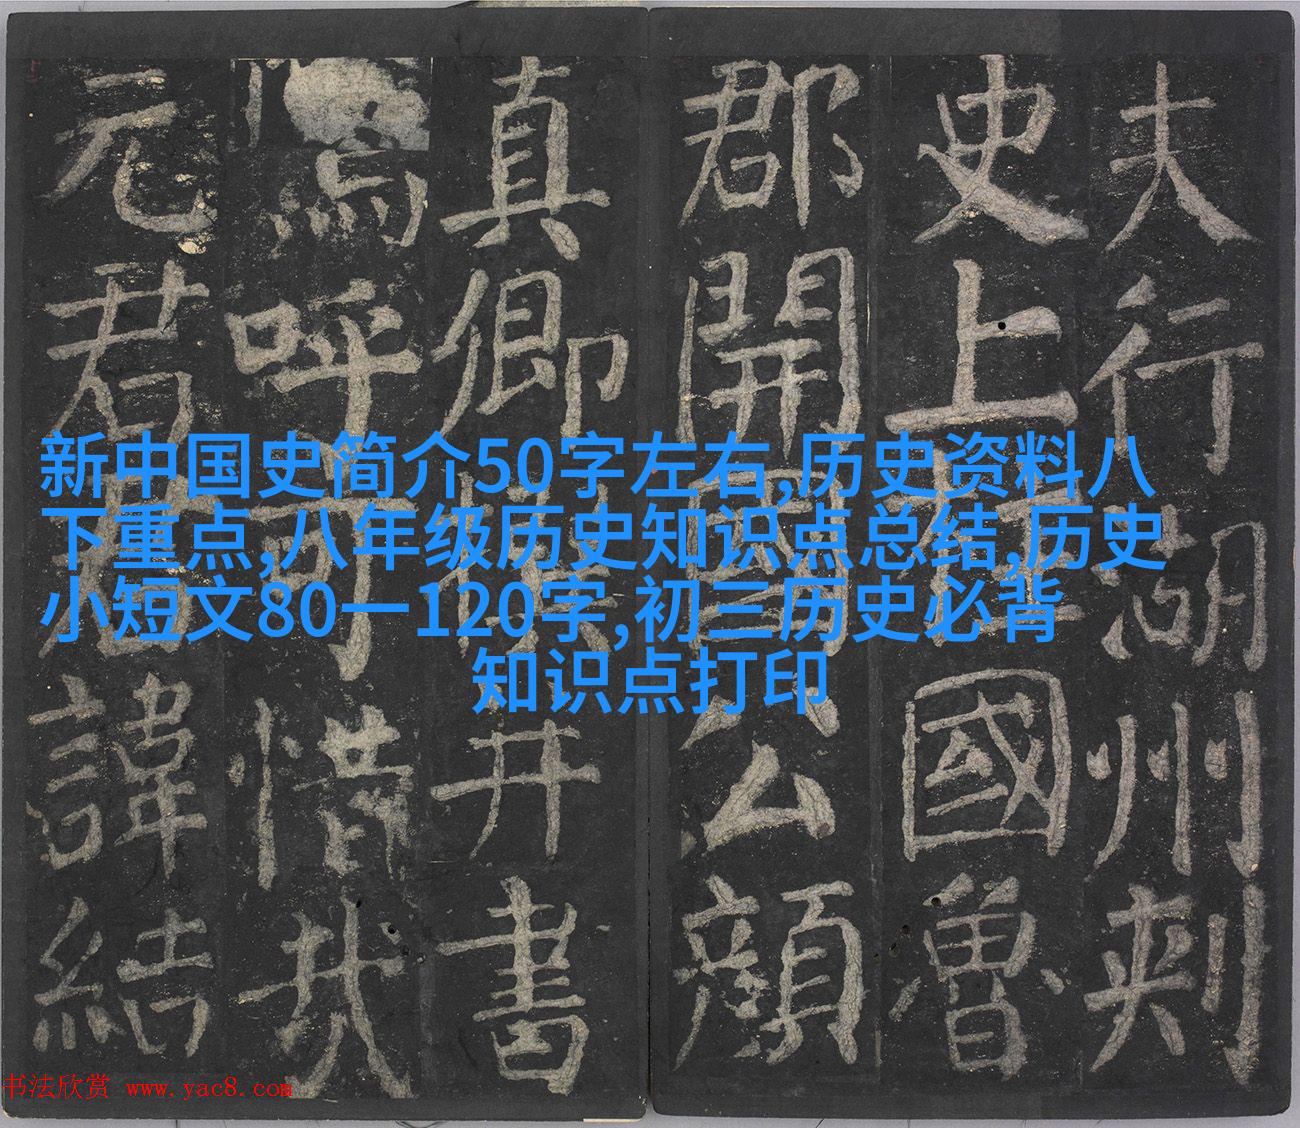 夫行湖州刺
史上柱國魯
郡開國公顔
真卿撰并書
嗚呼可惜哉
元君君諱結
新中国史简介50字左右,历史资料八
下重点,八年级历史知识点总结,历史
小短文80一120字,初三历史必背
知识点打印
书法欣赏 www.yac8.com